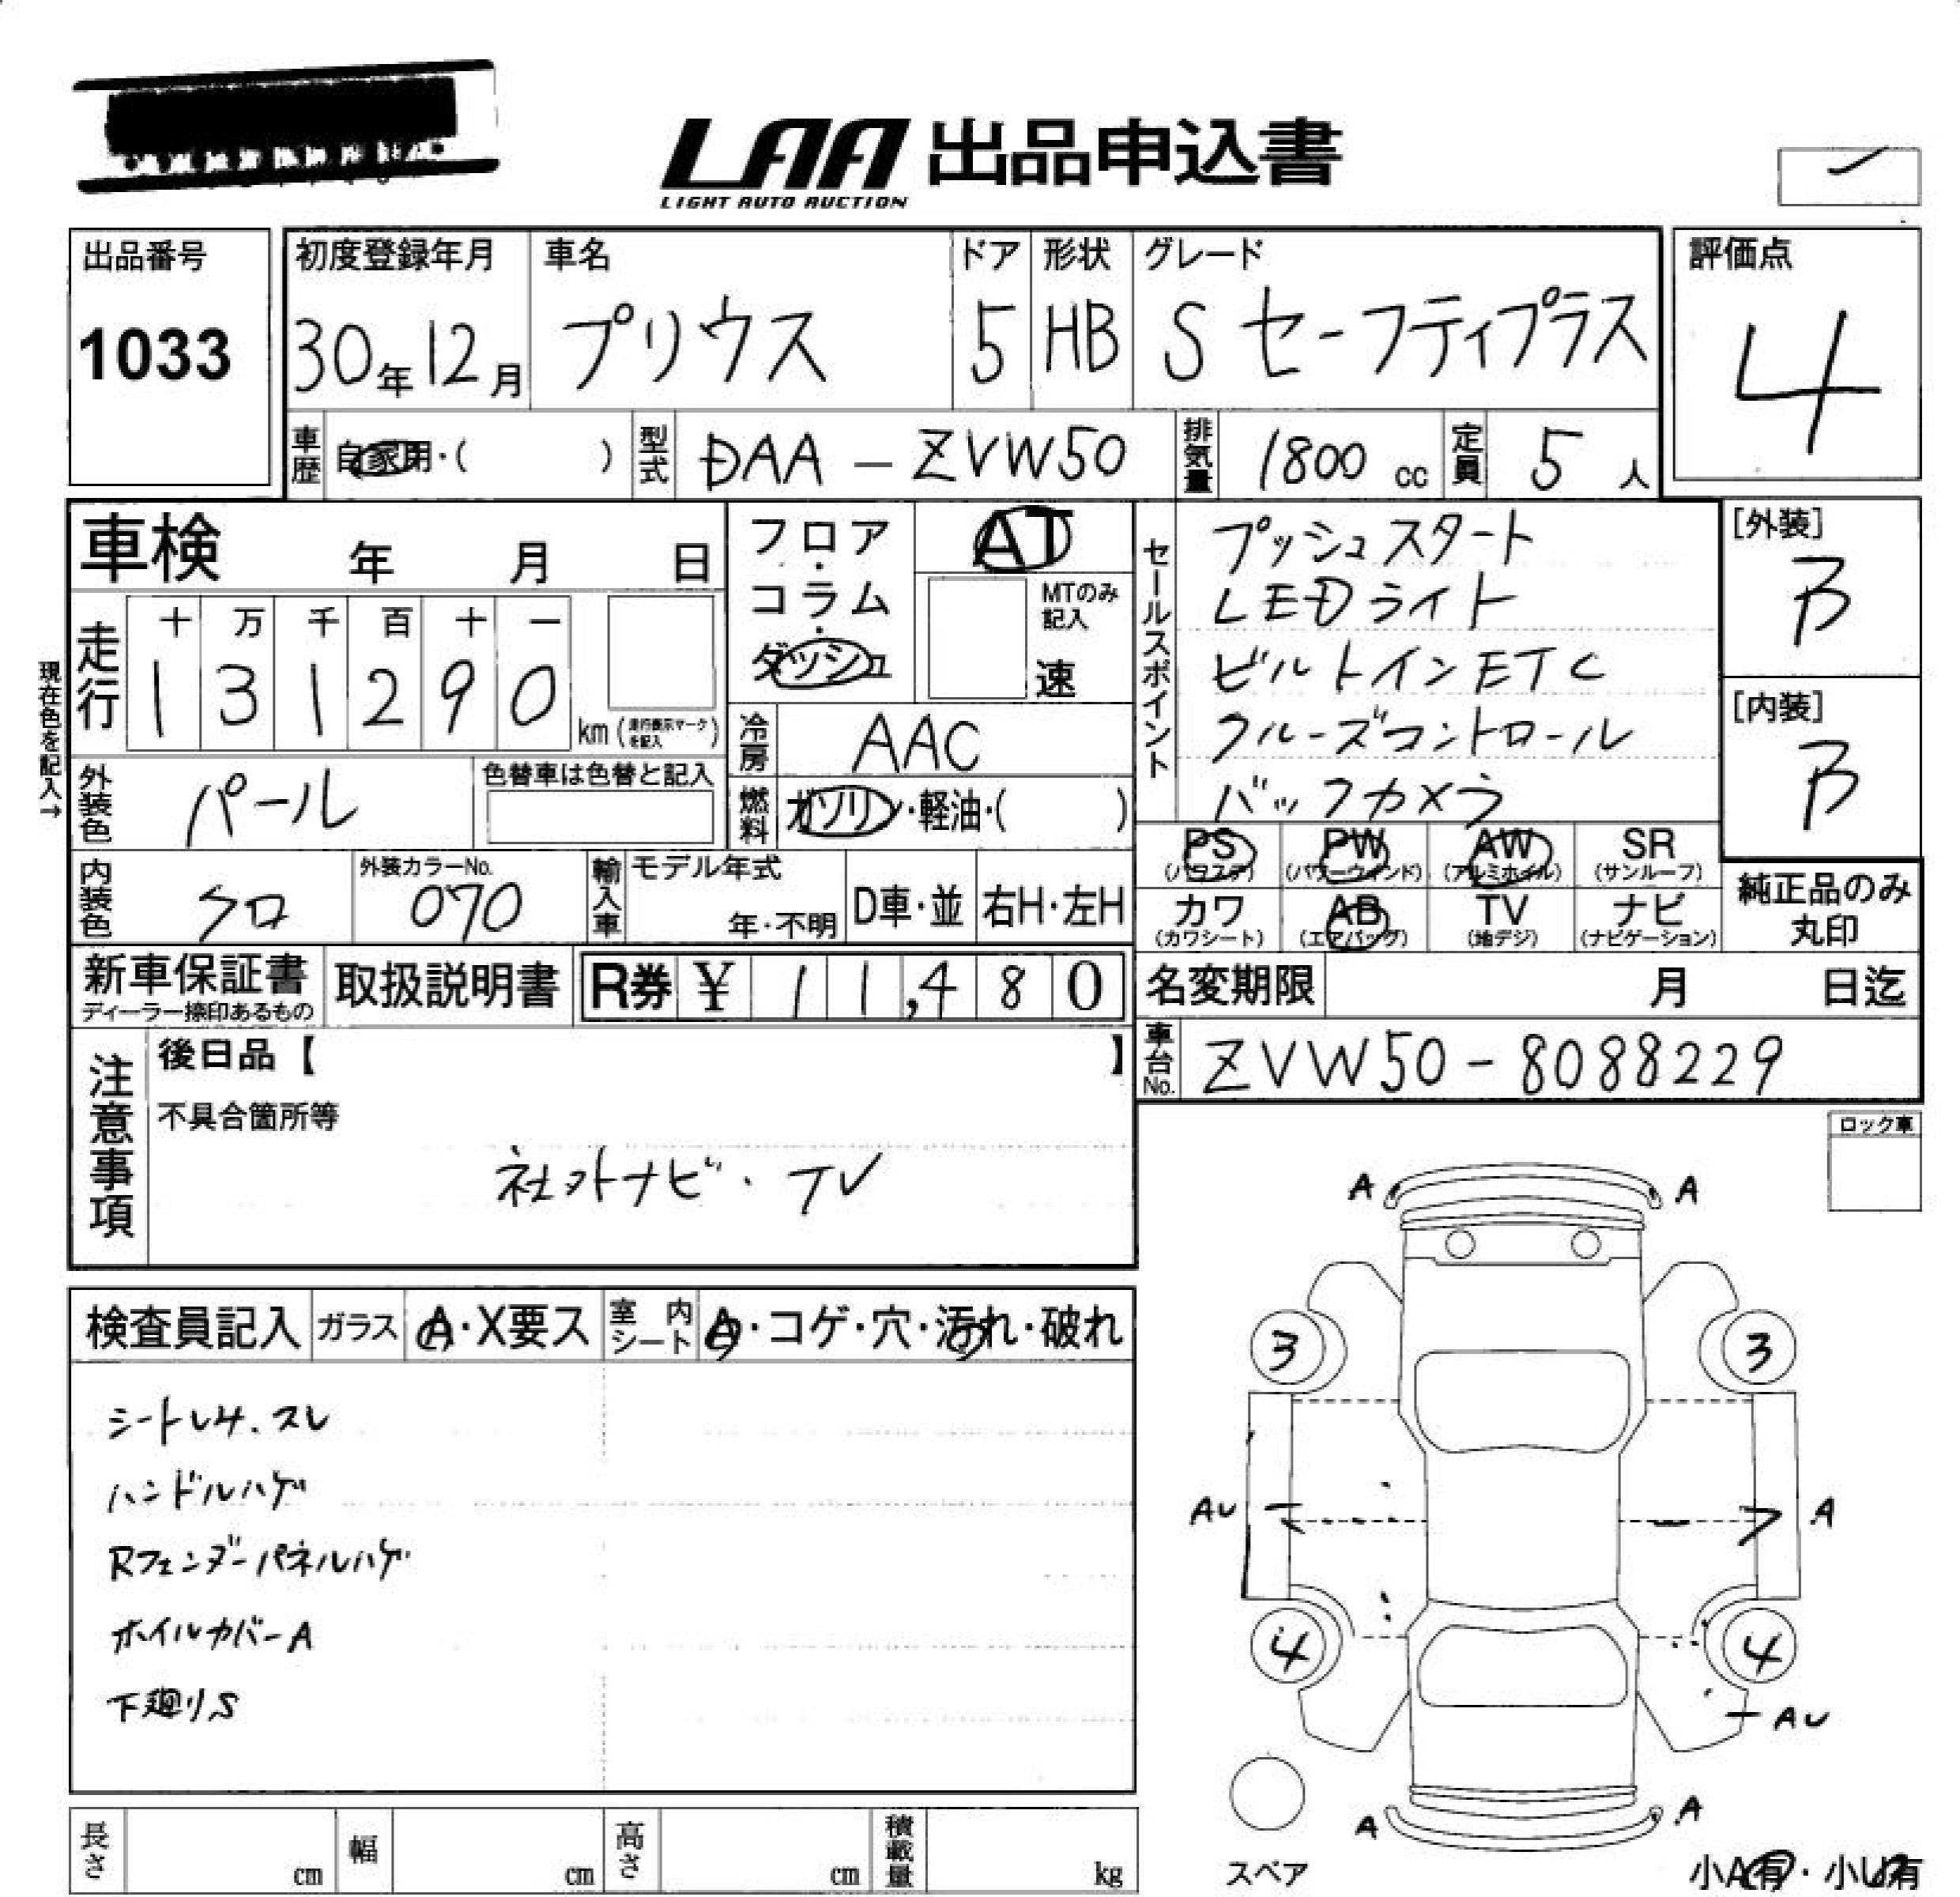 LAA 出品申込書
LIGHT AUTO AUCTION
出品番号
1033
初度登録年月
30年12月
車名
プリウス
ドア
5
形状
HB
グレード
S セーフティプラス
評価点
4
車歴
自家用・( )
型式
DAA - ZVW50
排気量
1800 cc
定員
5 人
車検 年 月 日
フロア・コラム・ダッシュ
AT
MTのみ記入
速
セールスポイント
プッシュスタート
LEDライト
ビルトインETC
クルーズコントロール
バックカメラ
[外装]
B
[内装]
B
現在色を記入→
走行
十 万 千 百 十 一
1 3 1 2 9 0 km (走行表示マークを記入)
冷房
AAC
外装色
パール
色替車は色替と記入
燃料
ガソリン・軽油・( )
PS (パワステ)
PW (パワーウインド)
AW (アルミホイル)
SR (サンルーフ)
カワ (カワシート)
AB (エアバッグ)
TV (地デジ)
ナビ (ナビゲーション)
純正品のみ丸印
内装色
クロ
外装カラーNo.
070
輸入車
モデル年式
年・不明
D車・並
右H・左H
新車保証書
ディーラー捺印あるもの
取扱説明書
R券 ¥ 11,480
名変期限 月 日迄
車台No.
ZVW50-8088229
注意事項
後日品【 】
不具合箇所等
社外ナビ・TV
ロック車
検査員記入
ガラス
A・X要ス
室内シート
A・コゲ・穴・汚れ・破れ
シートシワ、スレ
ハンドルハゲ
Rフェンダーパネルハゲ
ホイルカバーA
下廻りS
A A
3 3
AU A
4 4
AU
A A
スペア
小A有・小U有
長さ cm
幅 cm
高さ cm
積載量 kg